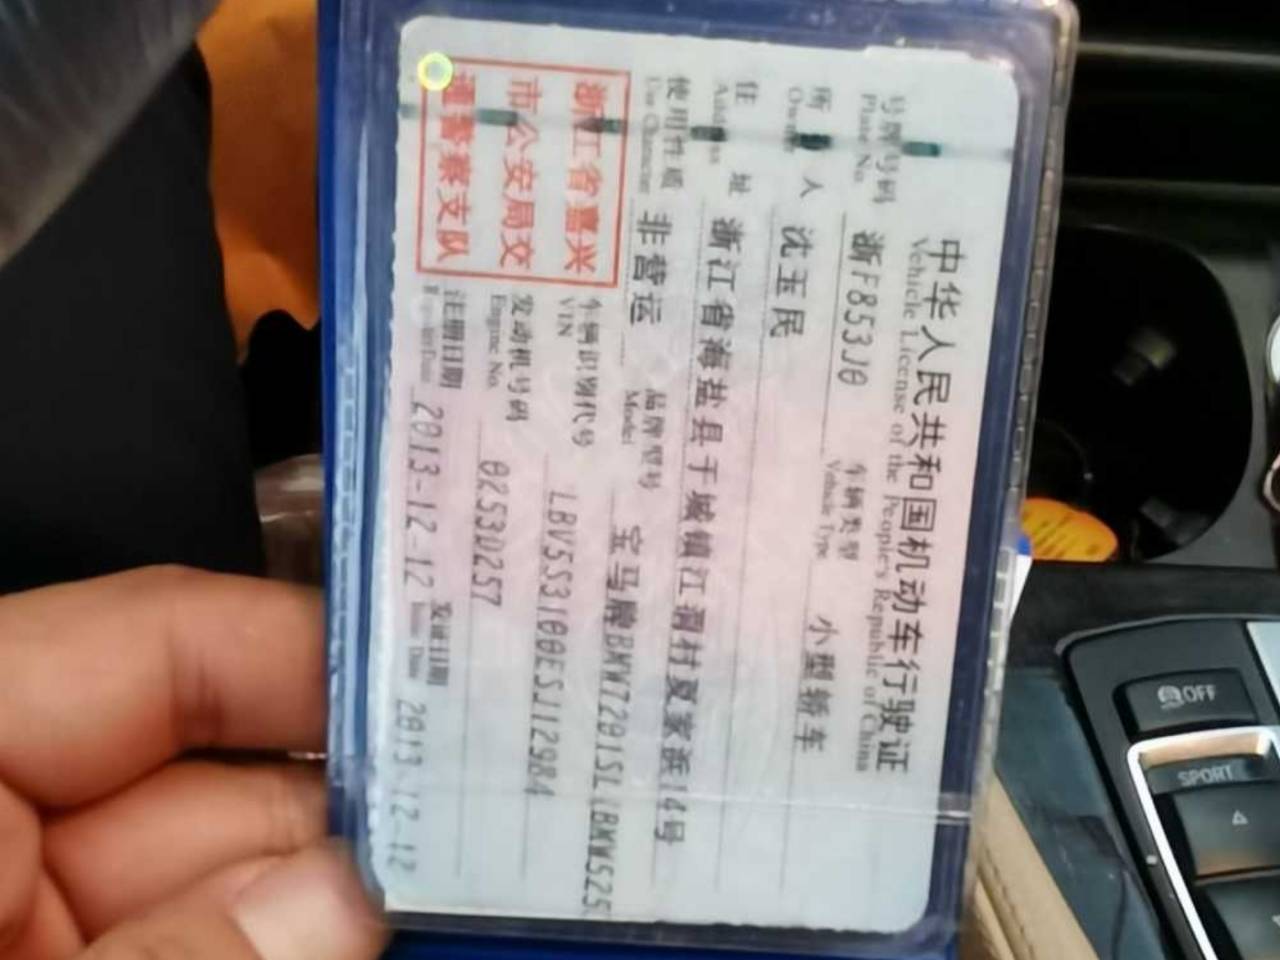 中华人民共和国机动车行驶证
Vehicle License of the People's Republic of China
号牌号码 浙F853J0 车辆类型 小型轿车
Plate No. Vehicle Type
所有人 沈玉民
Owner
住址 浙江省海盐县于城镇江洞村夏家浜14号
Address
使用性质 非营运 品牌型号 宝马牌BMW7201SL(BMW525
Use Character Model
浙江省嘉兴
市公安局交
通警察支队
车辆识别代号 LBV5S3100ESJ12984
VIN
发动机号码 0253D257
Engine No.
注册日期 2013-12-12 发证日期 2013-12-12
Register Date Issue Date
OFF
SPORT